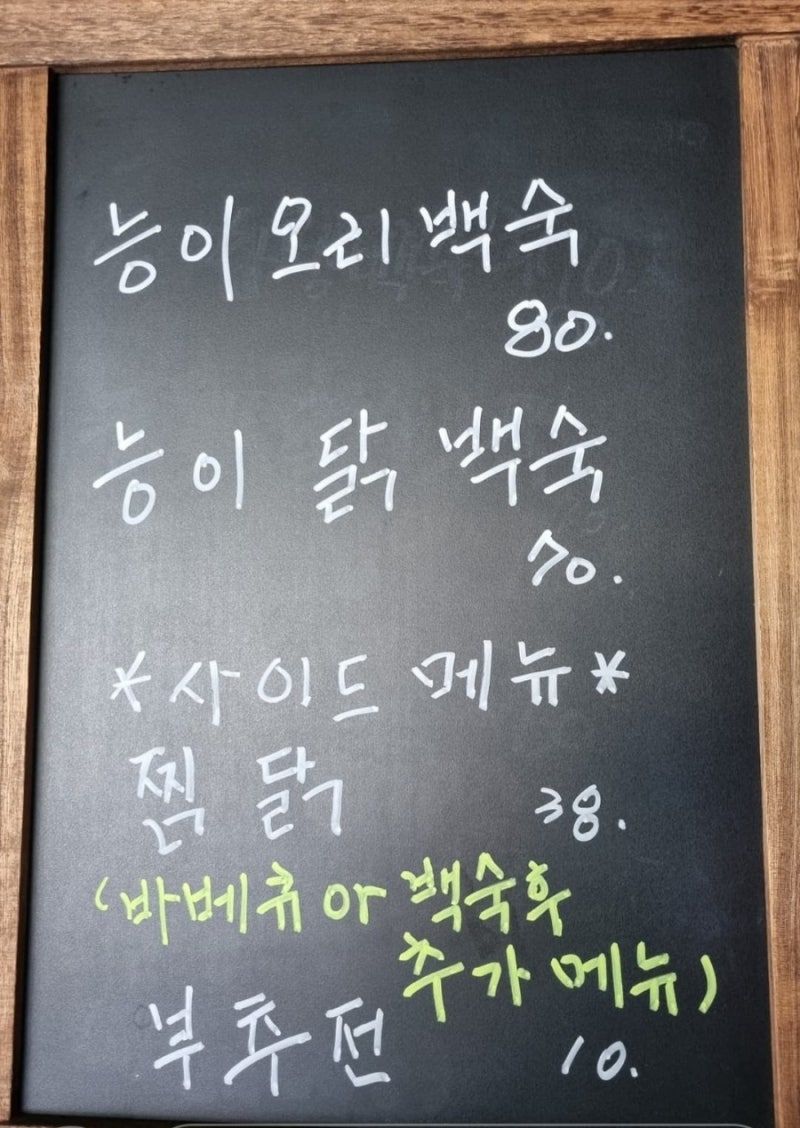 능이오리백숙
80.
능이 닭 백숙
70.
*사이드 메뉴*
찜닭 38.
(바베큐 or 백숙후
추가 메뉴)
부추전 10.